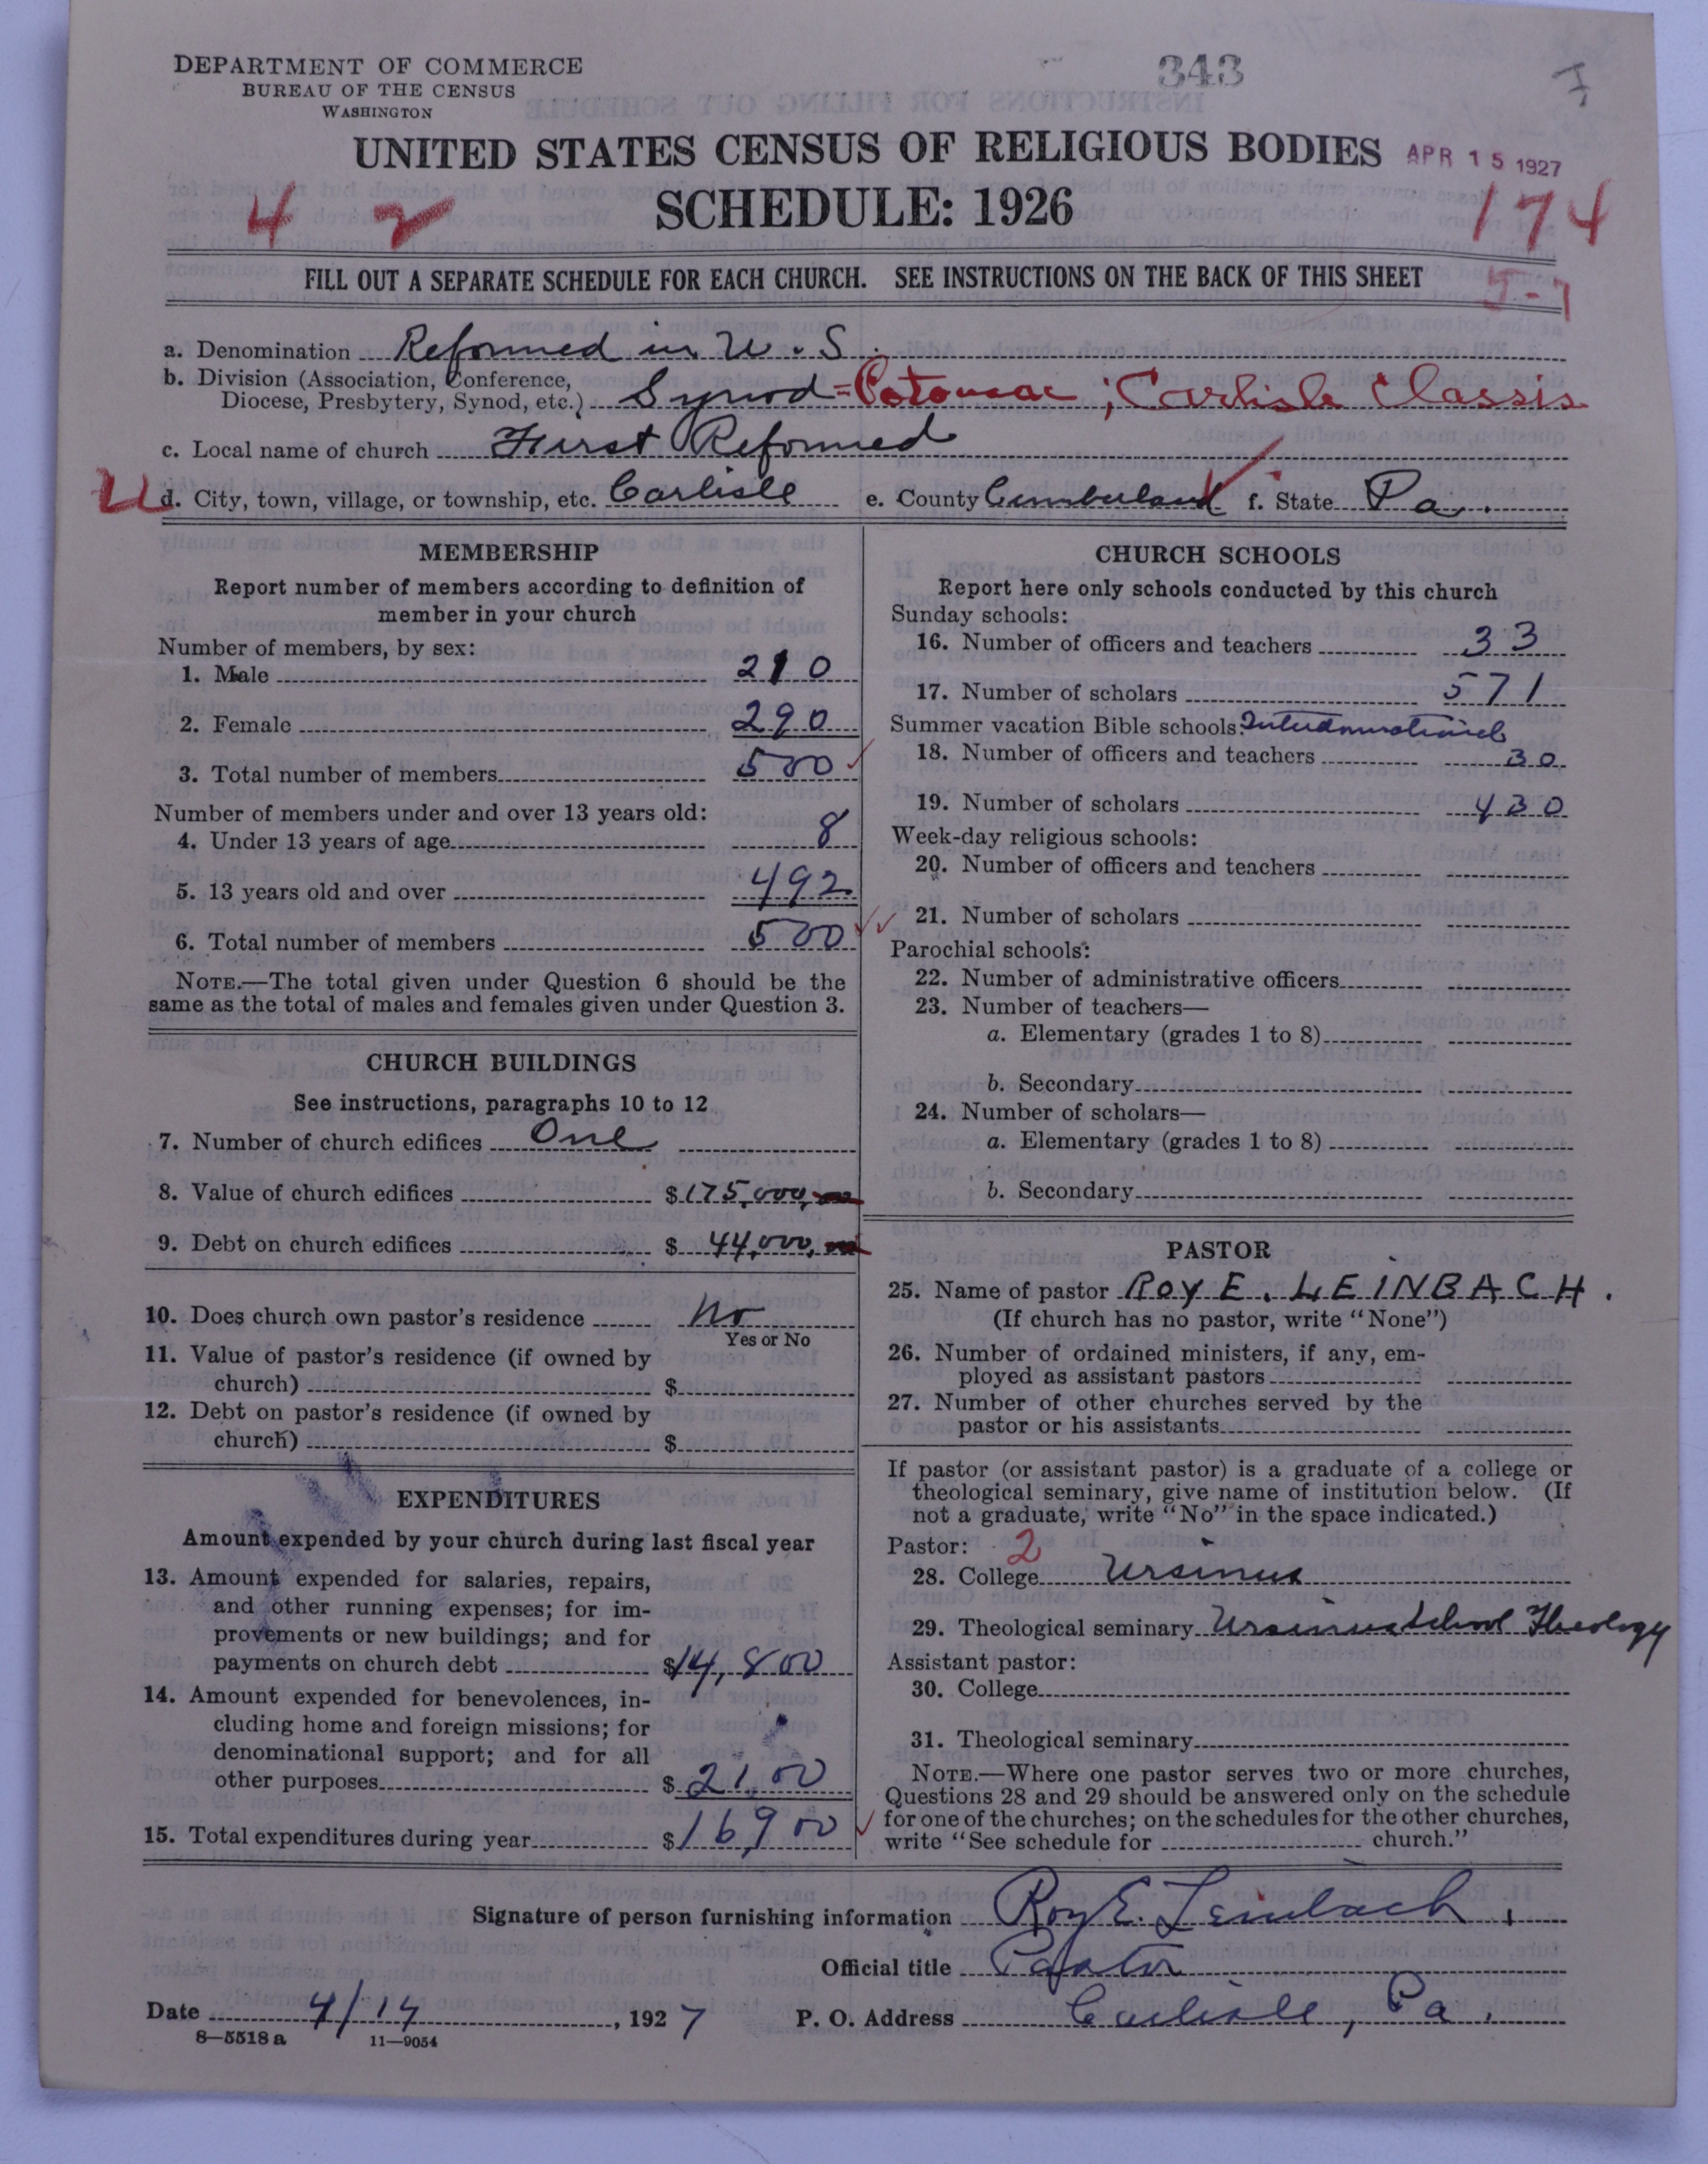 DEPARTMENT OF COMMERCE
BUREAU OF THE CENSUS
WASHINGTON
343
UNITED STATES CENSUS OF RELIGIOUS BODIES
APR 15 1927
SCHEDULE: 1926
4 2
174
FILL OUT A SEPARATE SCHEDULE FOR EACH CHURCH. SEE INSTRUCTIONS ON THE BACK OF THIS SHEET
5-7
a. Denomination Reformed in U.S.
b. Division (Association, Conference, Diocese, Presbytery, Synod, etc.) Synod=Potomac; Carlisle Classis
c. Local name of church First Reformed
d. City, town, village, or township, etc. Carlisle e. County Cumberland f. State Pa.
MEMBERSHIP
Report number of members according to definition of
member in your church
Number of members, by sex:
1. Male 210
2. Female 290
3. Total number of members 500
Number of members under and over 13 years old:
4. Under 13 years of age 8
5. 13 years old and over 492
6. Total number of members 500
NOTE.—The total given under Question 6 should be the
same as the total of males and females given under Question 3.
CHURCH BUILDINGS
See instructions, paragraphs 10 to 12
7. Number of church edifices One
8. Value of church edifices $175,000
9. Debt on church edifices $44,000
10. Does church own pastor's residence No
Yes or No
11. Value of pastor's residence (if owned by
church) $
12. Debt on pastor's residence (if owned by
church) $
EXPENDITURES
Amount expended by your church during last fiscal year
13. Amount expended for salaries, repairs,
and other running expenses; for im-
provements or new buildings; and for
payments on church debt $14,800
14. Amount expended for benevolences, in-
cluding home and foreign missions; for
denominational support; and for all
other purposes $2100
15. Total expenditures during year $16900
CHURCH SCHOOLS
Report here only schools conducted by this church
Sunday schools:
16. Number of officers and teachers 33
17. Number of scholars 571
Summer vacation Bible schools: Interdenominational
18. Number of officers and teachers 30
19. Number of scholars 430
Week-day religious schools:
20. Number of officers and teachers
21. Number of scholars
Parochial schools:
22. Number of administrative officers
23. Number of teachers—
a. Elementary (grades 1 to 8)
b. Secondary
24. Number of scholars—
a. Elementary (grades 1 to 8)
b. Secondary
PASTOR
25. Name of pastor ROY E. LEINBACH.
(If church has no pastor, write "None")
26. Number of ordained ministers, if any, em-
ployed as assistant pastors
27. Number of other churches served by the
pastor or his assistants
If pastor (or assistant pastor) is a graduate of a college or
theological seminary, give name of institution below. (If
not a graduate, write "No" in the space indicated.)
Pastor: 2
28. College Ursinus
29. Theological seminary Ursinus School Theology
Assistant pastor:
30. College
31. Theological seminary
NOTE.—Where one pastor serves two or more churches,
Questions 28 and 29 should be answered only on the schedule
for one of the churches; on the schedules for the other churches,
write "See schedule for church."
Signature of person furnishing information Roy E. Leinbach.
Official title Pastor
Date 4/14, 1927 P. O. Address Carlisle, Pa.
8—5518 a 11—9054